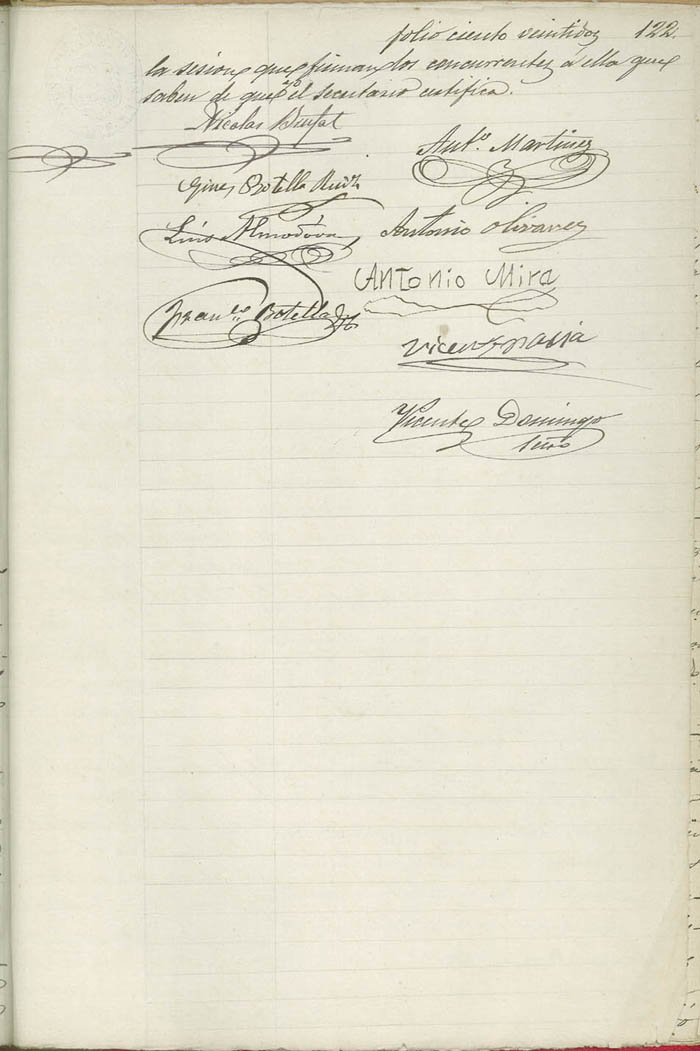 folio ciento veintidos 122.
la sesion que firman los concurrentes á ella que
saben de que yo el secretario certifica.
Nicolas
Ant.º Martinez
Gines Botella Ruiz
Luis Almodóva
Antonio Olivarez
Antonio Mira
Fran.co Botella
Vicente
Vicente Domingo
Srio